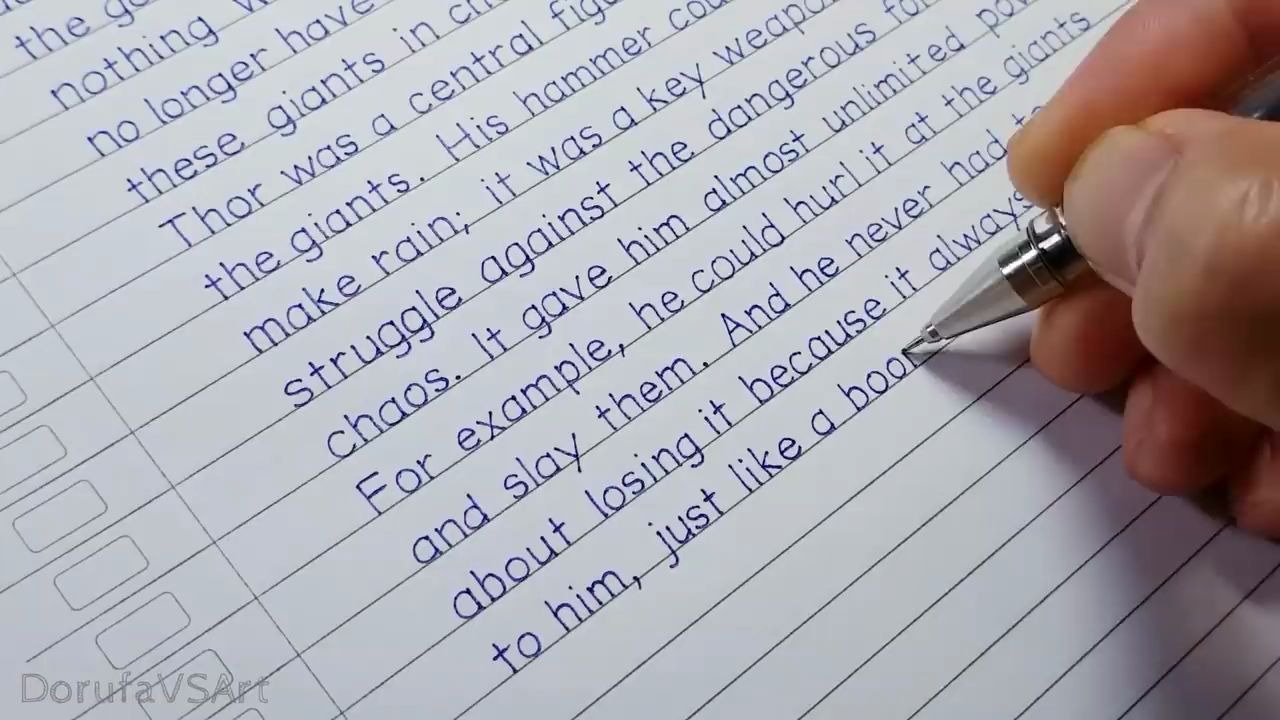 the
nothing
no longer have
these giants in
Thor was a central
the giants. His hammer
make rain; it was a key
struggle against the dangerous
chaos. It gave him almost unlimited
For example, he could hurl it at the giants
and slay them. And he never had
about losing it because it always
to him, just like a
DorufaVSArt